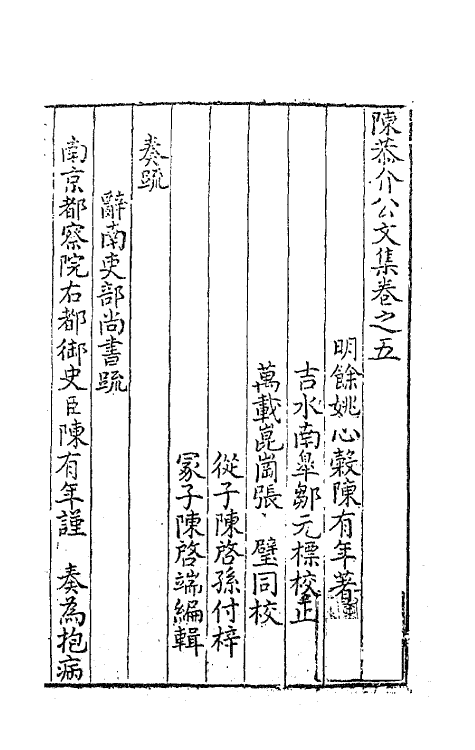 陳恭介公文集卷之五
明餘姚心穀陳有年著
吉水南臯鄒元標校正
萬載崑崗張 璧同校
從子陳啓孫付梓
冢子陳啓端編輯
奏疏
辭南吏部尚書疏
南京都察院右都御史臣陳有年謹 奏為抱病